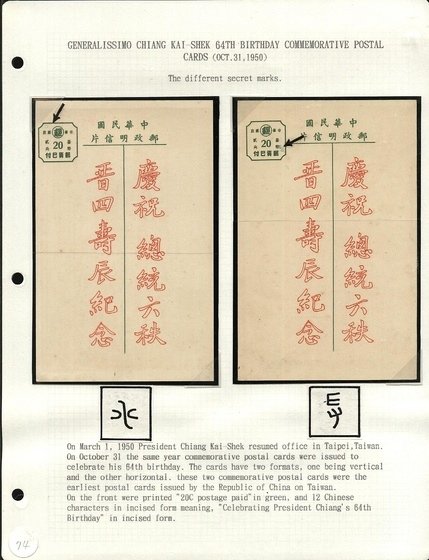 GENERALISSIMO CHIANG KAI-SHEK 64TH BIRTHDAY COMMEMORATIVE POSTAL
CARDS (OCT.31,1950)
The different secret marks.
中華民國
郵政明信片
20
郵資已付
慶祝 總統六秩
晉四壽辰紀念
中華民國
郵政明信片
20
郵資已付
慶祝 總統六秩
晉四壽辰紀念
On March 1, 1950 President Chiang Kai-Shek resumed office in Taipei,Taiwan.
On October 31 the same year commemorative postal cards were issued to
celebrate his 64th birthday. The cards have two formats, one being vertical
and the other horizontal. these two commemorative postal cards were the
earliest postal cards issued by the Republic of China on Taiwan.
On the front were printed "20C postage paid" in green, and 12 Chinese
characters in incised form meaning, "Celebrating President Chiang's 64th
Birthday" in incised form.
74